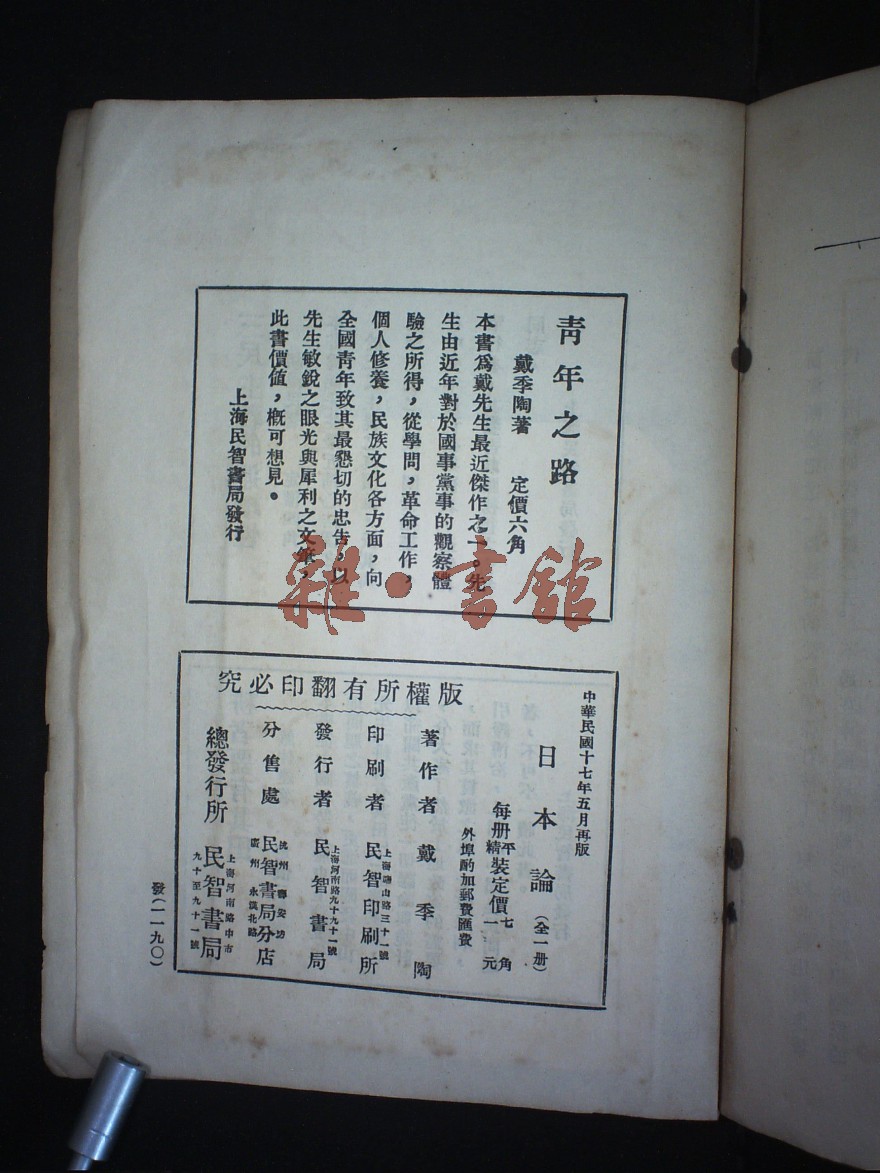 青年之路
戴季陶著　定價六角
本書爲戴先生最近傑作之一。先
生由近年對於國事黨事的觀察體
驗之所得，從學問，革命工作，
個人修養，民族文化各方面，向
全國靑年致其最懇切的忠告，以
先生敏銳之眼光與犀利之文筆，
此書價値，槪可想見。
上海民智書局發行
雜·書館
版權所有翻印必究
中華民國十七年五月再版
日本論（全一册）
每册平裝定價七角
精一元
外埠酌加郵費匯費
著作者 戴季陶
印刷者 上海 山路三十一號 民智印刷所
發行者 上海河南路九十九十一號 民智書局
分售處 杭州 廣州 永漢北路 民智書局分店
總發行所 上海河南路中市九十至九十一號 民智書局
發(一一九〇)